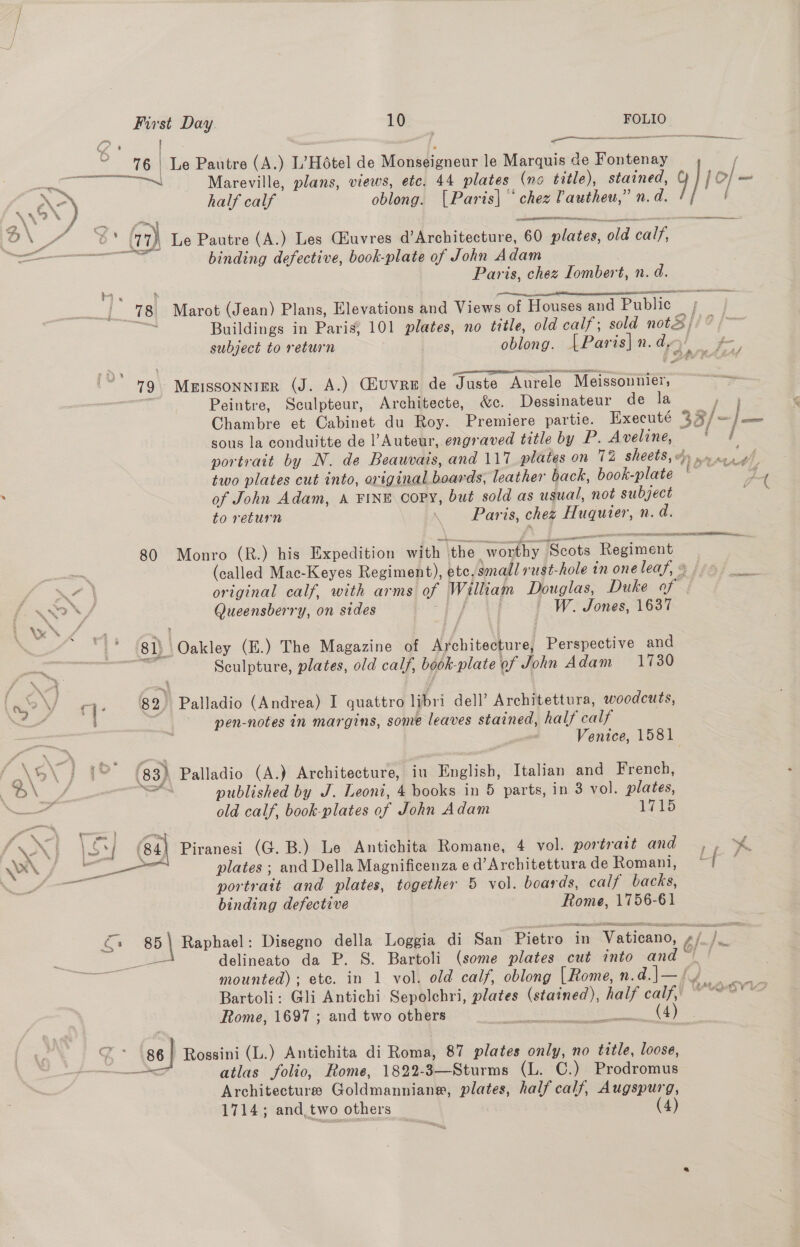 First Day 10 FOLIO
76 Le Pautre (A.) L'Hôtel de Monseigneur le Marquis de Fontenay
Mareville, plans, views, etc. 44 plates (no title), stained,
half calf oblong. [Paris] "chez l'autheu," n.d.
77 Le Pautre (A.) Les Œuvres d'Architecture, 60 plates, old calf,
binding defective, book-plate of John Adam
Paris, chez Iombert, n. d.
78 Marot (Jean) Plans, Elevations and Views of Houses and Public
Buildings in Paris, 101 plates, no title, old calf; sold not
subject to return oblong. [Paris] n. d.
79 MEISSONNIER (J. A.) ŒUVRE de Juste Aurele Meissonnier,
Peintre, Sculpteur, Architecte, &c. Dessinateur de la
Chambre et Cabinet du Roy. Premiere partie. Executé
sous la conduitte de l'Auteur, engraved title by P. Aveline,
portrait by N. de Beauvais, and 117 plates on 72 sheets,
two plates cut into, original boards, leather back, book-plate
of John Adam, A FINE COPY, but sold as usual, not subject
to return Paris, chez Huquier, n. d.
80 Monro (R.) his Expedition with the worthy Scots Regiment
(called Mac-Keyes Regiment), etc. small rust-hole in one leaf,
original calf, with arms of William Douglas, Duke of
Queensberry, on sides W. Jones, 1637
81 Oakley (E.) The Magazine of Architecture, Perspective and
Sculpture, plates, old calf, book-plate of John Adam 1730
82 Palladio (Andrea) I quattro libri dell' Architettura, woodcuts,
pen-notes in margins, some leaves stained, half calf
Venice, 1581
83 Palladio (A.) Architecture, in English, Italian and French,
published by J. Leoni, 4 books in 5 parts, in 3 vol. plates,
old calf, book-plates of John Adam 1715
84 Piranesi (G. B.) Le Antichita Romane, 4 vol. portrait and
plates; and Della Magnificenza e d'Architettura de Romani,
portrait and plates, together 5 vol. boards, calf backs,
binding defective Rome, 1756-61
85 Raphael: Disegno della Loggia di San Pietro in Vaticano,
delineato da P. S. Bartoli (some plates cut into and
mounted); etc. in 1 vol. old calf, oblong [Rome, n.d.]—
Bartoli: Gli Antichi Sepolchri, plates (stained), half calf,
Rome, 1697; and two others (4)
86 Rossini (L.) Antichita di Roma, 87 plates only, no title, loose,
atlas folio, Rome, 1822-3—Sturms (L. C.) Prodromus
Architecturæ Goldmannianæ, plates, half calf, Augspurg,
1714; and two others (4)